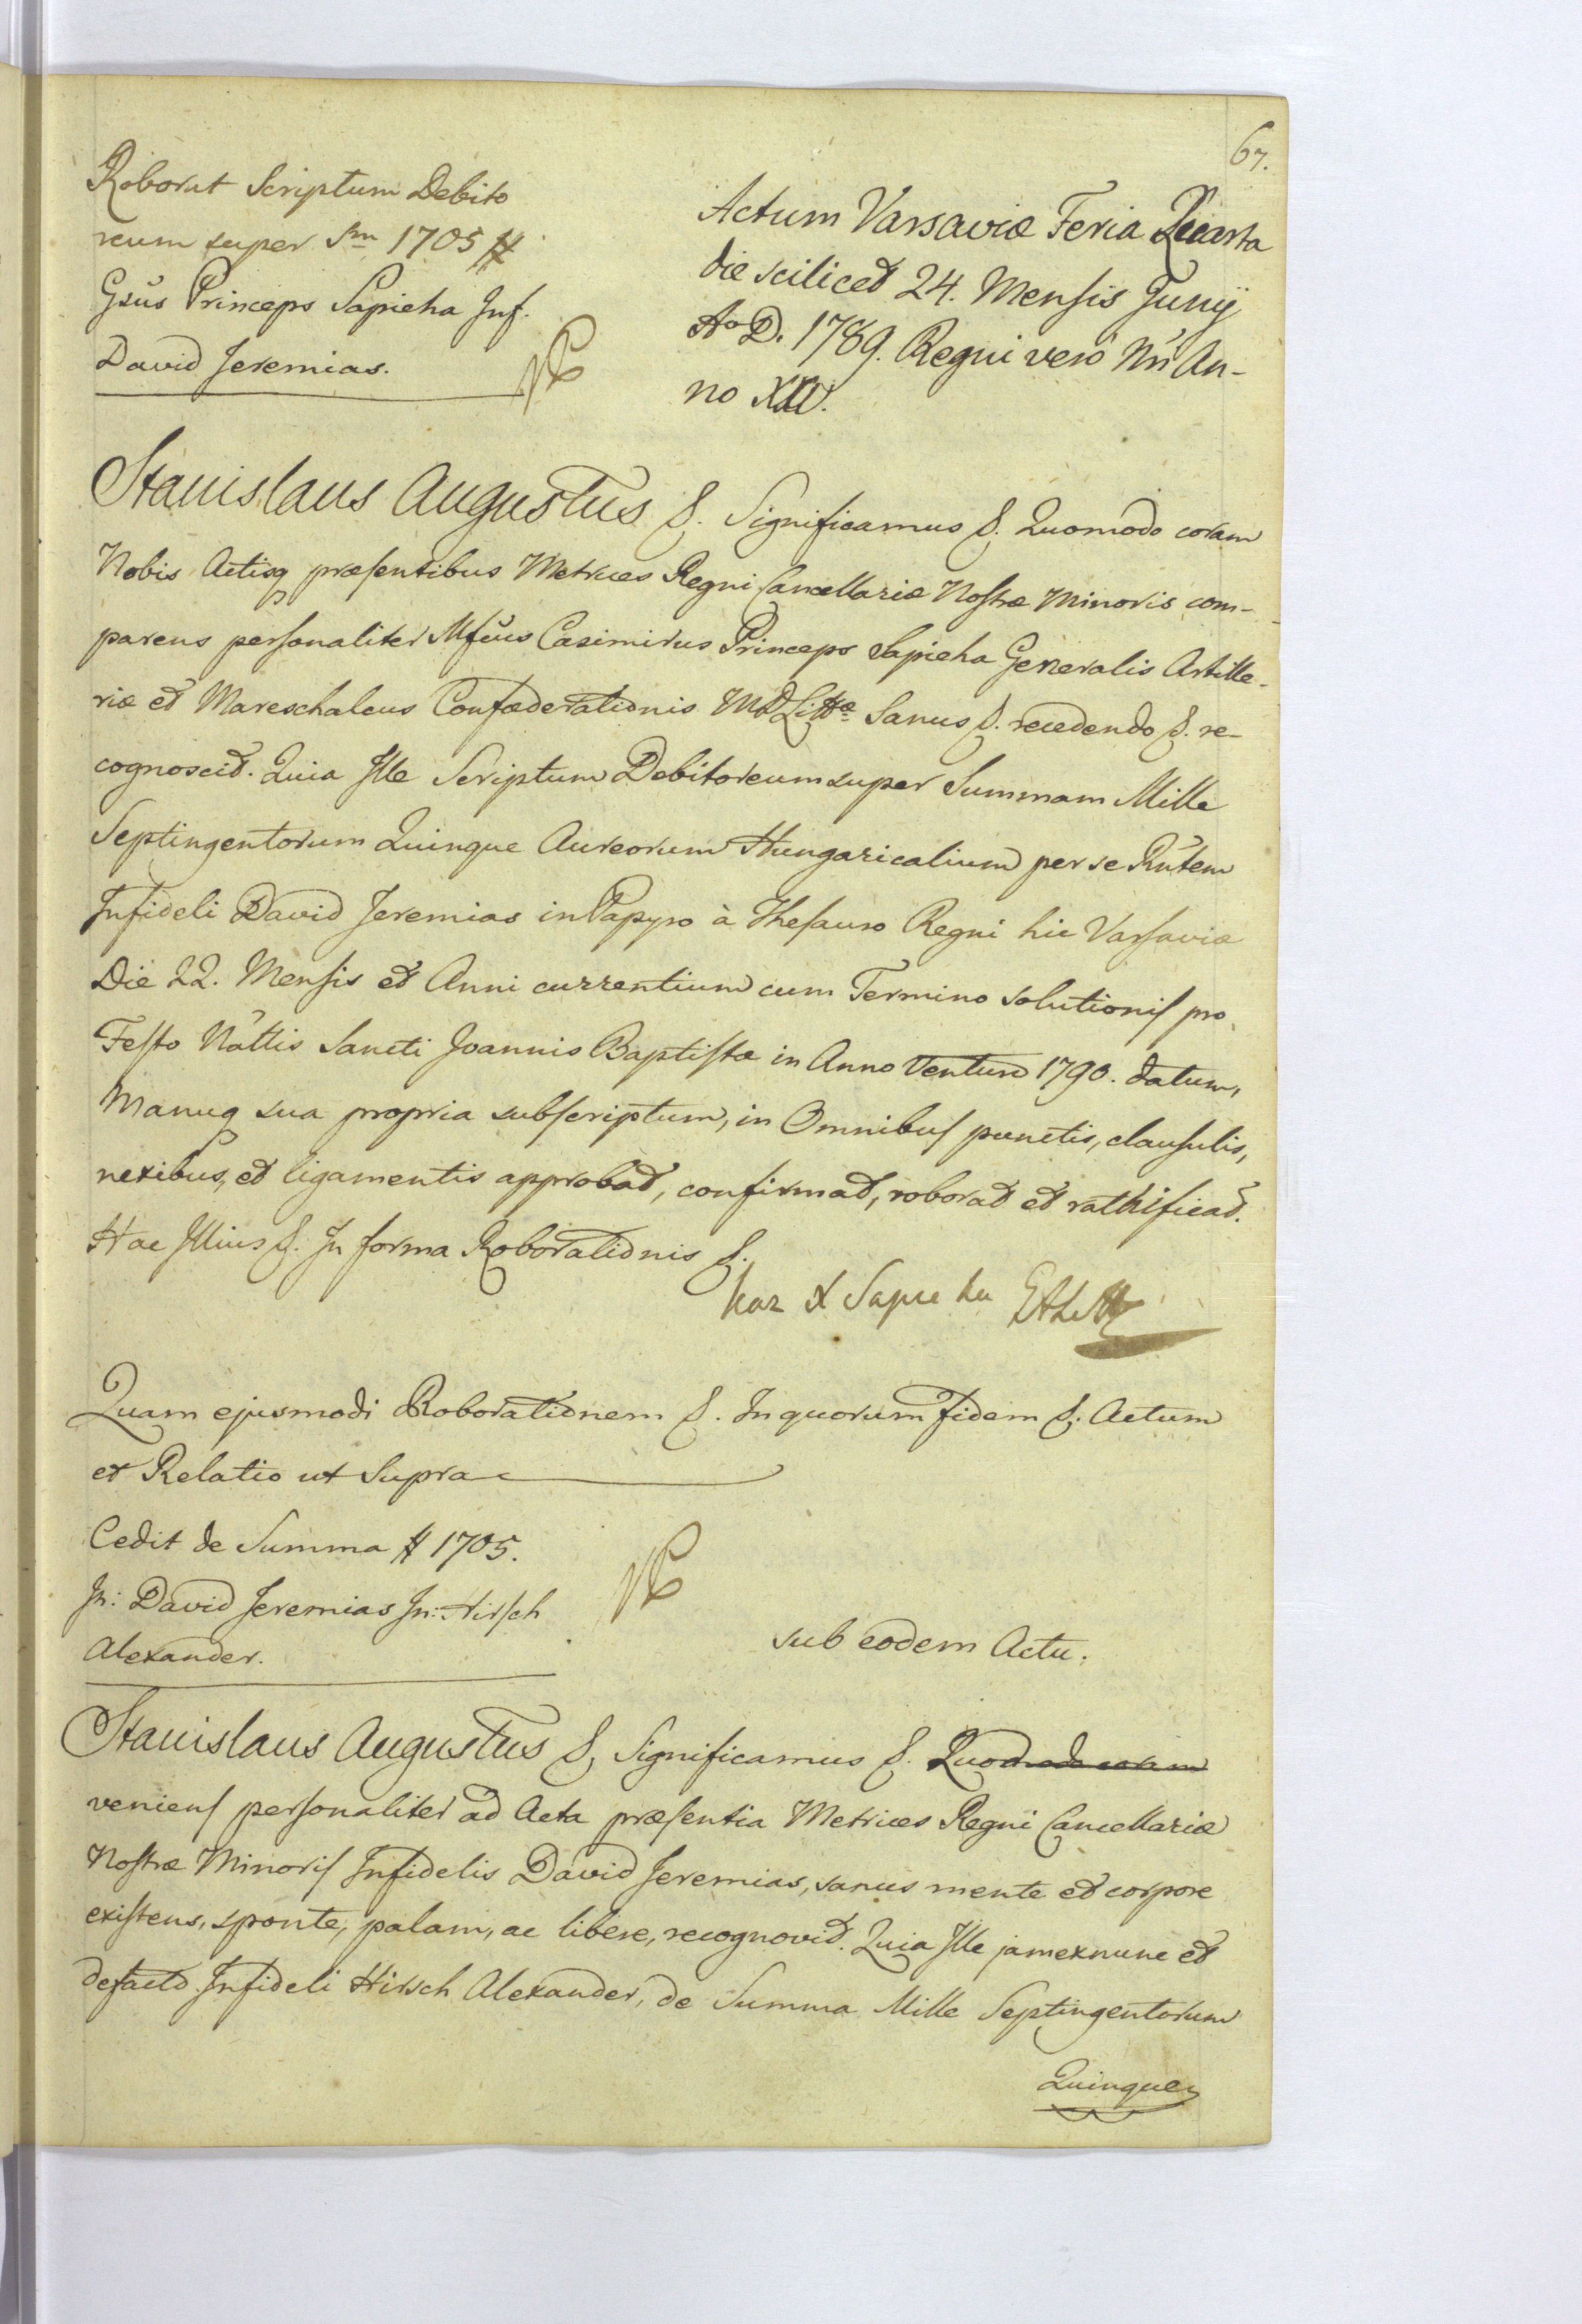 67.
Roborat Scriptum Debito
reum super Sm 1705 #
Gnus Princeps Sapieha Inf.
David Jeremias.
Actum Varsaviæ Feria Quarta
die scilicet 24. Mensis Junij
Ao D. 1789. Regni vero Nri An-
no XXV.
Stanislaus Augustus &. Significamus &. Quomodo coram
Nobis Actisq præsentibus Metrices Regni Cancellariæ Nostræ Minoris com-
parens personaliter Mfcus Casimirus Princeps Sapieha Generalis Artille-
riæ et Mareschalcus Confæderationis MDLittæ Sanus &. recedendo &. re-
cognoscit. Quia Ille Scriptum Debitoreum super Summam Mille
Septingentorum Quinque Aureorum Hungaricalium per se Rntem
Infideli David Jeremias in Papyro à Thesauro Regni hic Varsaviæ
Die 22. Mensis et Anni currentium cum Termino solutionis pro
Festo Nattis Sancti Joannis Baptistæ in Anno Venturo 1790. datum,
Manuq sua propria subscriptum, in Omnibus punctis, clausulis,
nexibus, et ligamentis approbat, confirmat, roborat et rathificat.
Hac Illius &. In forma Roborationis &.
Kaz X Sapieha
Quam ejusmodi Roborationem &. In quorum fidem &. Actum
et Relatio ut Supra
Cedit de Summa # 1705.
In: David Jeremias In: Hirsch
Alexander.
sub eodem Actu.
Stanislaus Augustus &. Significamus &. Quomodo coram
veniens personaliter ad Acta præsentia Metrices Regni Cancellariæ
Nostræ Minoris Infidelis David Jeremias, sanus mente et corpore
existens, sponte, palam, ac libere, recognovit. Quia Ille jam exnunc et
defacto Infideli Hirsch Alexander, de Summa Mille Septingentorum
Quinque